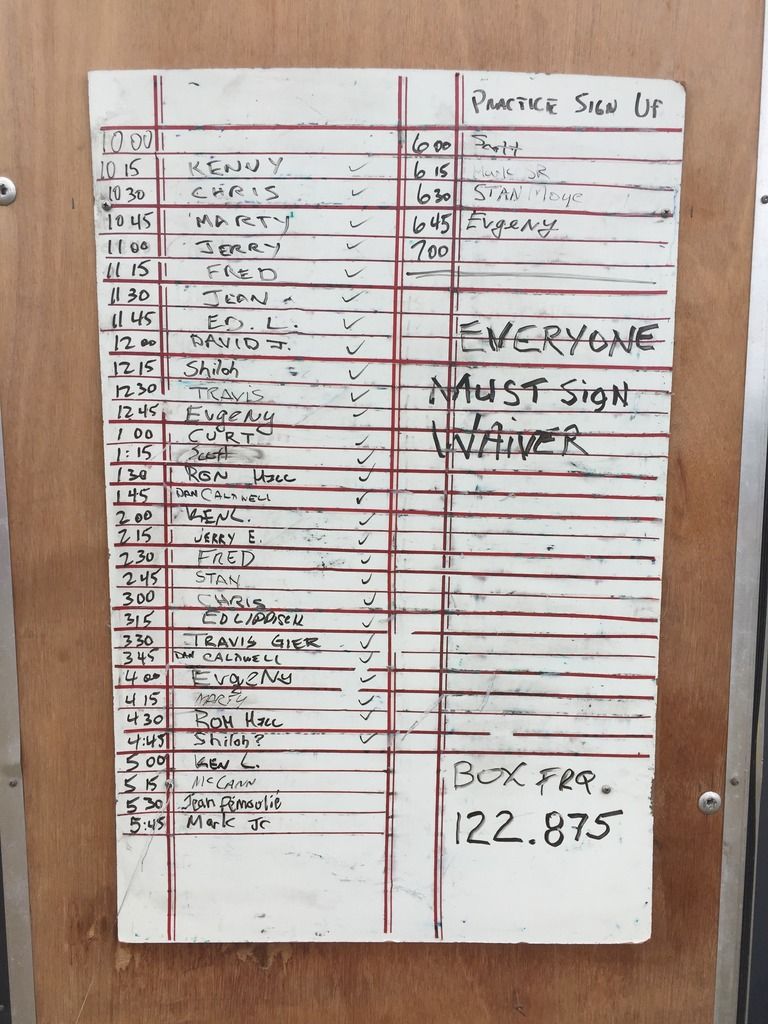 PRACTICE SIGN UP
10 00
10 15 KENNY ✓
10 30 CHRIS ✓
10 45 MARTY ✓
11 00 JERRY ✓
11 15 FRED ✓
11 30 JEAN ✓
11 45 ED. L. ✓
12 00 DAVID J. ✓
12 15 Shiloh ✓
12 30 TRAVIS ✓
12 45 Evgeny ✓
1 00 CURT ✓
1:15 Scott ✓
1 30 RON HILL ✓
1 45 DAN CALDWELL ✓
2 00 KEN L. ✓
2 15 JERRY E. ✓
2 30 FRED ✓
2 45 STAN ✓
3 00 CHRIS ✓
3 15 ED ✓
3 30 TRAVIS GIER ✓
3 45 DAN CALDWELL ✓
4 00 Evgeny ✓
4 15 MARTY ✓
4 30 RON HILL ✓
4:45 Shiloh? ✓
5 00 KEN L.
5 15 McCANN
5 30 Jean
5:45 Mark Jr
6 00 Scott
6 15 Mark JR
6 30 STAN Moye
6 45 Evgeny
7 00
EVERYONE
MUST SIGN
WAIVER
BOX FRQ.
122.875